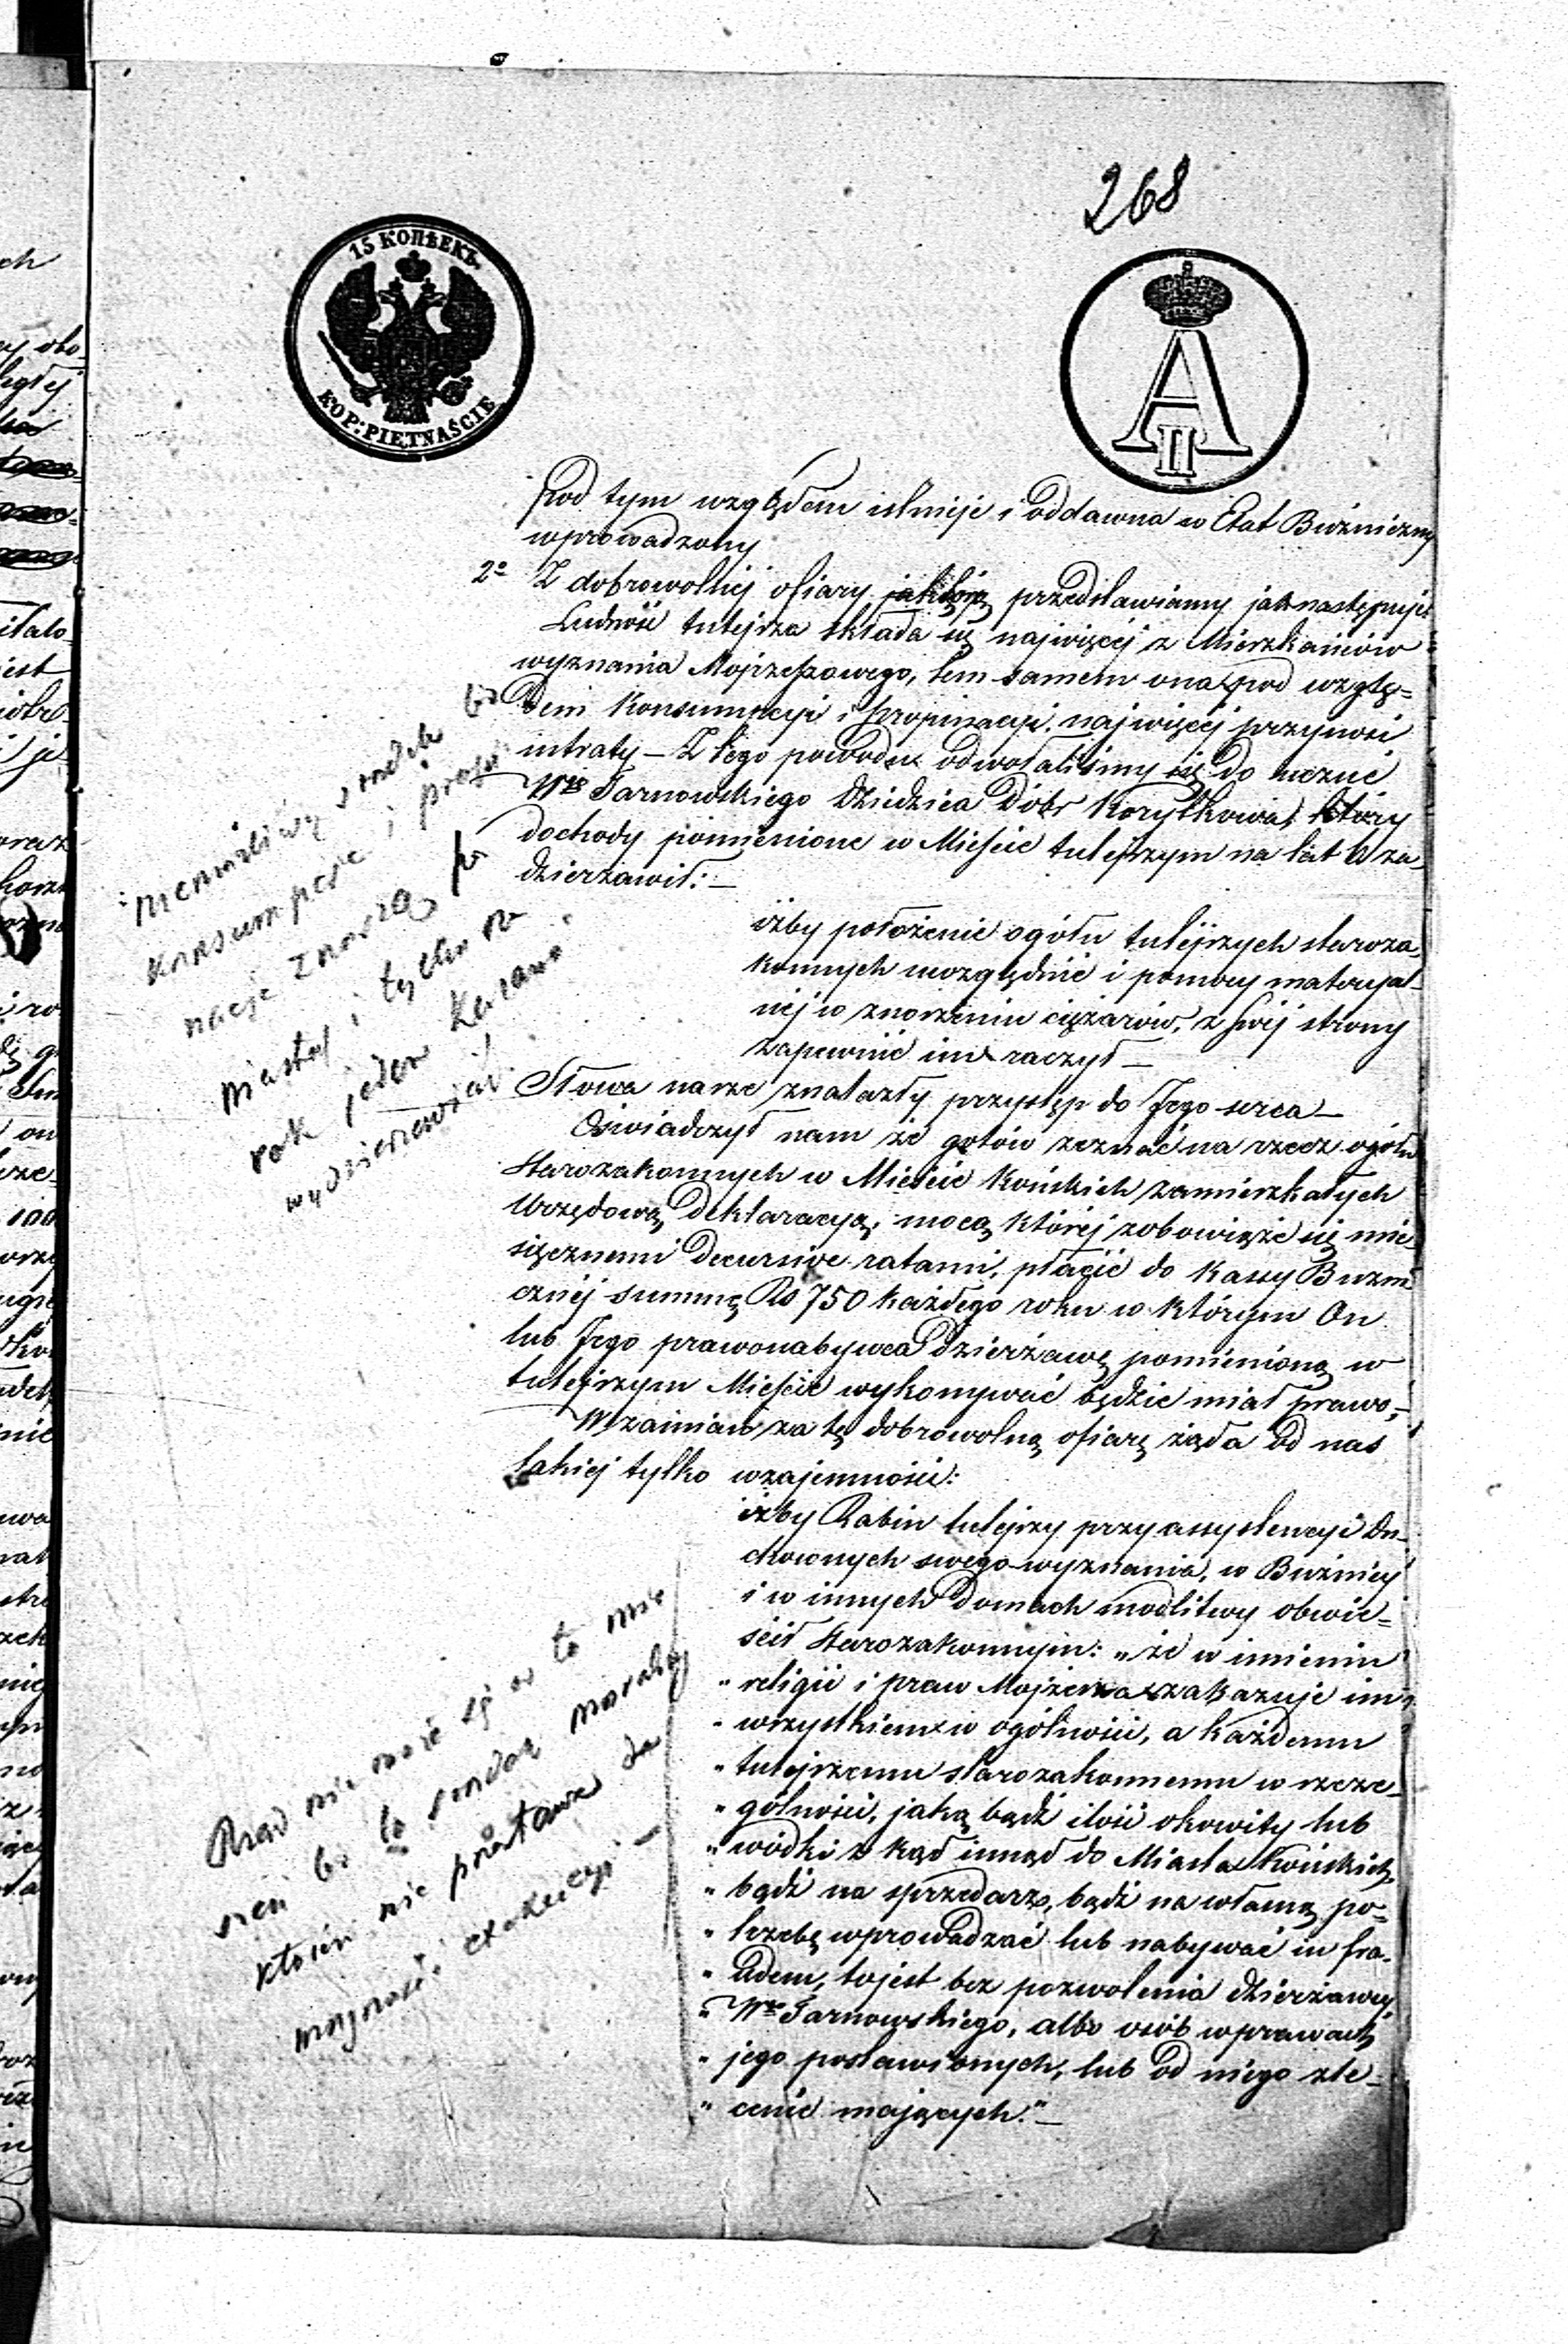 268
15 КОПѢЕКЪ.
KOP: PIĘTNAŚCIE
A II
pod tym względem istnieje i oddawna w Etat Bóżniczny
wprowadzony
2° Z dobrowolnej ofiary przedstawiamy jak następuje
Ludność tutejsza składa się najwięcej z Mieszkańców
wyznania Mojżeszowego, tem samem ona pod wzglę-
dem Konsumpcyi i propinacyi najwięcej przynosi
intraty – Z tego powodu odwołaliśmy się do uczuć
Wgo Tarnowskiego Dziedzica Dóbr Korytkowa, który
dochody pomienione w Mieście tutejszym na lat za
dzierżawił: –
iżby położenie ogółu tutejszych staroza-
konnych uwzględnić i pomocy materyal-
nej w znoszeniu ciężarów, z swej strony
zapewnić im raczył –
Słowa nasze znalazły przystęp do Jego serca –
Oświadczył nam że gotów zeznać na rzecz ogółu
Starozakonnych w Mieście Końskich zamieszkałych
Urzędową Deklaracyą, mocą której zobowiąże się mie-
sięcznemi decursive ratami, płacić do Kassy Bużni
cznej summę Rs 750 każdego roku w którym On
lub Jego prawonabywca Dzierżawę pomienioną w
tutejszym Mieście wykonywać będzie miał prawo; –
W zamian za tę dobrowolną ofiarę żąda od nas
takiej tylko wzajemności:
iżby Rabin tutejszy przy assystencyi Du-
chownych swego wyznania, w Bużnicy
i w innych Domach modlitwy obwie-
ścił Starozakonnym: „że w imieniu
„ religii i praw Mojżesza zakazuje im
„ wszystkiem w ogólności, a każdemu
„ tutejszemu starozakonnemu w szcze-
„ gólności, jaką bądź ilość okowity lub
„ wódki z kąd innąd do Miasta Końskich,
„ bądź na sprzedarz, bądź na własną po-
„ trzebę wprowadzać lub nabywać in fra-
„ udem, to jest bez pozwolenia Dzierżawcy,
„ Wgo Tarnowskiego, albo osób w prawach
„ jego postawionych, lub od niego zle-
„ cenie mających." –
niemożliwy środek bo
Konsumpcje i propi
nacje znoszą po
miastach i tylko na
rok jeden kazano
wydzierżawiać.
Rząd nie może się w to mie
szać bo to środek moralny
któren nie przedstawia da